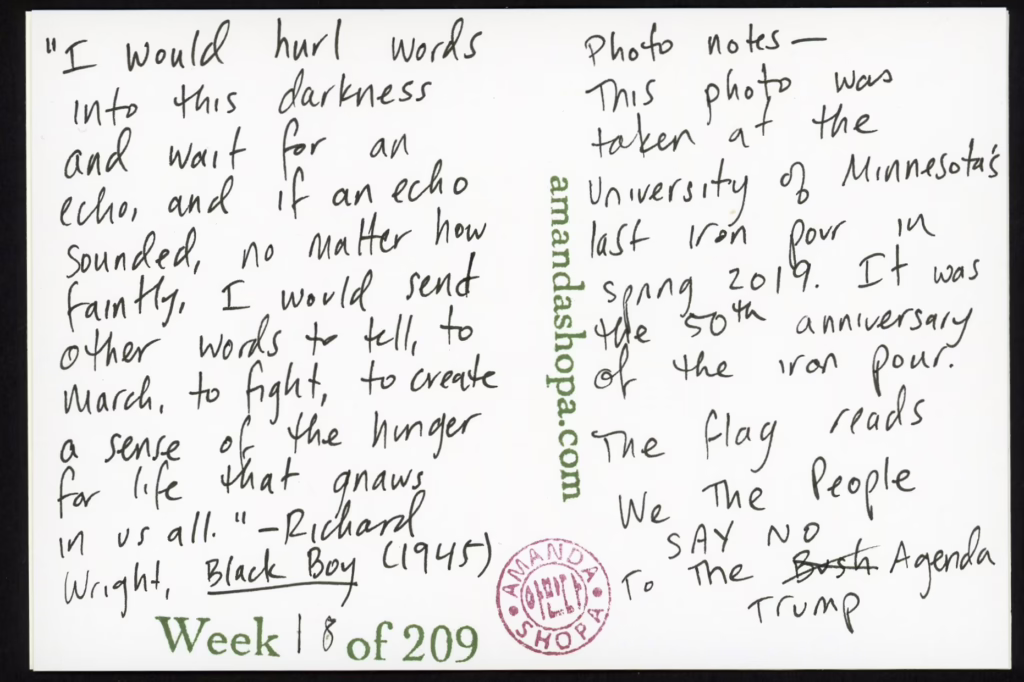 "I would hurl words
into this darkness
and wait for an
echo, and if an echo
sounded, no matter how
faintly, I would send
other words to tell, to
march, to fight, to create
a sense of the hunger
for life that gnaws
in us all." –Richard
Wright, Black Boy (1945)
Week 18 of 209
amandashopa.com
AMANDA
아만다
SHOPA
Photo notes—
This photo was
taken at the
University of Minnesota's
last iron pour in
spring 2019. It was
the 50th anniversary
of the iron pour.
The flag reads
We The People
SAY NO
To The Bush Agenda
Trump